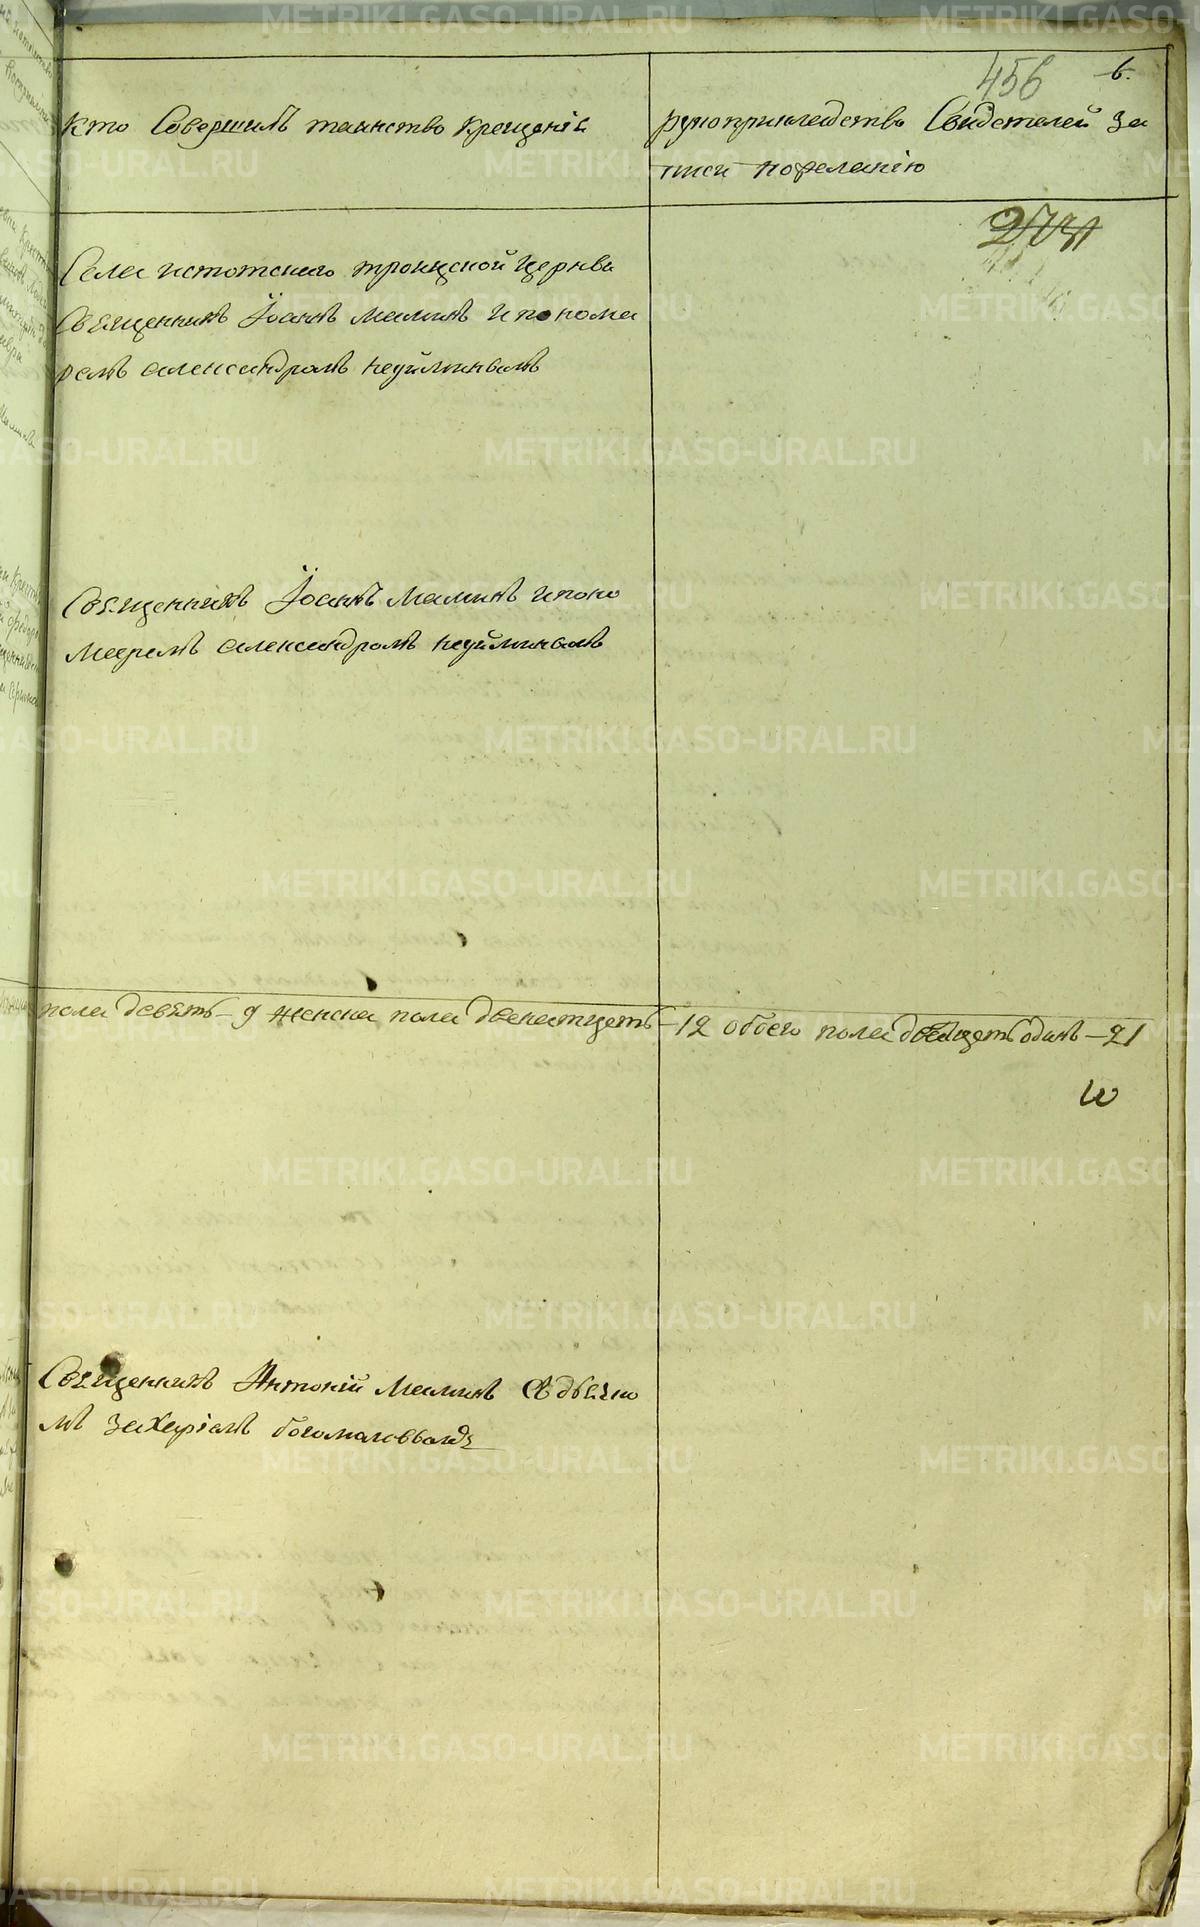 456 6.
Кто Совершилъ таинство Крещенія
рукоприкладство Свидетелей за
писи пожеланію
Села истотскаго троицкой Церкви
Священникъ Іоаннъ маминъ и понома
ремъ александромъ неуйминымъ
Священникъ Іоаннъ маминъ и поно
маремъ александромъ неуйминымъ
пола девять – 9 женска пола двенатцеть – 12 обоего пола двацеть одинъ – 21
Священникъ Антоній маминъ Съ дьячко
мъ захаріемъ богомоловымъ
METRIKI.GASO-URAL.RU